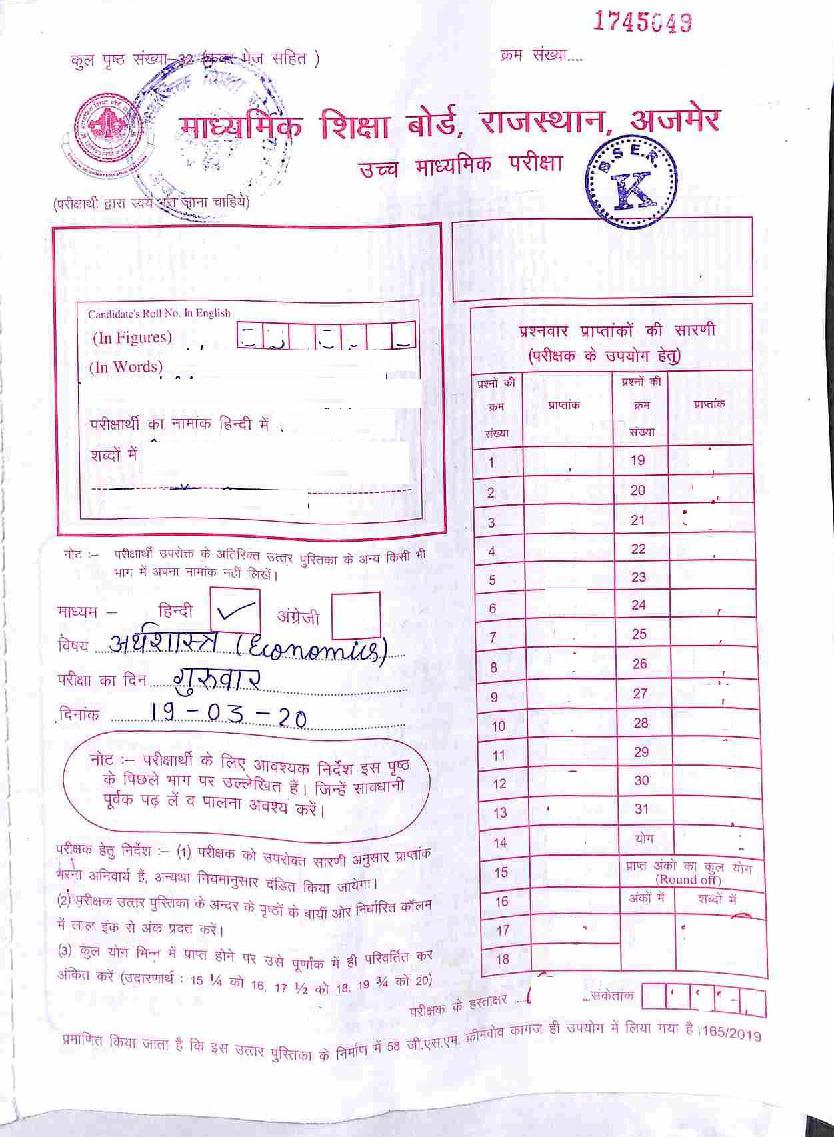 1745049
कुल पृष्ठ संख्या–32 (कवर पेज सहित )
क्रम संख्या....
माध्यमिक शिक्षा बोर्ड, राजस्थान, अजमेर
उच्च माध्यमिक परीक्षा
B.S.E.R.
K
(परीक्षार्थी द्वारा स्वयं भरा जाना चाहिये)
Candidate's Roll No. In English
(In Figures)
(In Words)
परीक्षार्थी का नामांक हिन्दी में
शब्दों में
नोट :– परीक्षार्थी उपरोक्त के अतिरिक्त उत्तर पुस्तिका के अन्य किसी भी
भाग में अपना नामांक नहीं लिखें।
माध्यम – हिन्दी ✓ अंग्रेजी
विषय अर्थशास्त्र (Economics)
परीक्षा का दिन गुरुवार
दिनांक 19-03-20
नोट :– परीक्षार्थी के लिए आवश्यक निर्देश इस पृष्ठ
के पिछले भाग पर उल्लेखित हैं। जिन्हें सावधानी
पूर्वक पढ़ लें व पालना अवश्य करें।
परीक्षक हेतु निर्देश :– (1) परीक्षक को उपरोक्त सारणी अनुसार प्राप्तांक
भरना अनिवार्य हैं, अन्यथा नियमानुसार दंडित किया जायेगा।
(2) परीक्षक उत्तर पुस्तिका के अन्दर के पृष्ठों के बायीं ओर निर्धारित कॉलम
में लाल इंक से अंक प्रदत करें।
(3) कुल योग भिन्न में प्राप्त होने पर उसे पूर्णांक में ही परिवर्तित कर
अंकित करें (उदारणार्थ : 15 ¼ को 16, 17 ½ को 18, 19 ¾ को 20)
प्रश्नवार प्राप्तांकों की सारणी
(परीक्षक के उपयोग हेतु)
प्रश्नों की क्रम संख्या प्राप्तांक प्रश्नों की क्रम संख्या प्राप्तांक
1 19
2 20
3 21
4 22
5 23
6 24
7 25
8 26
9 27
10 28
11 29
12 30
13 31
14 योग
15 प्राप्त अंको का कुल योग
(Round off)
16 अंकों में शब्दों में
17
18
परीक्षक के हस्ताक्षर संकेतांक
प्रमाणित किया जाता है कि इस उत्तर पुस्तिका के निर्माण में 58 जी.एस.एम. क्रीमवोव कागज ही उपयोग में लिया गया है।165/2019